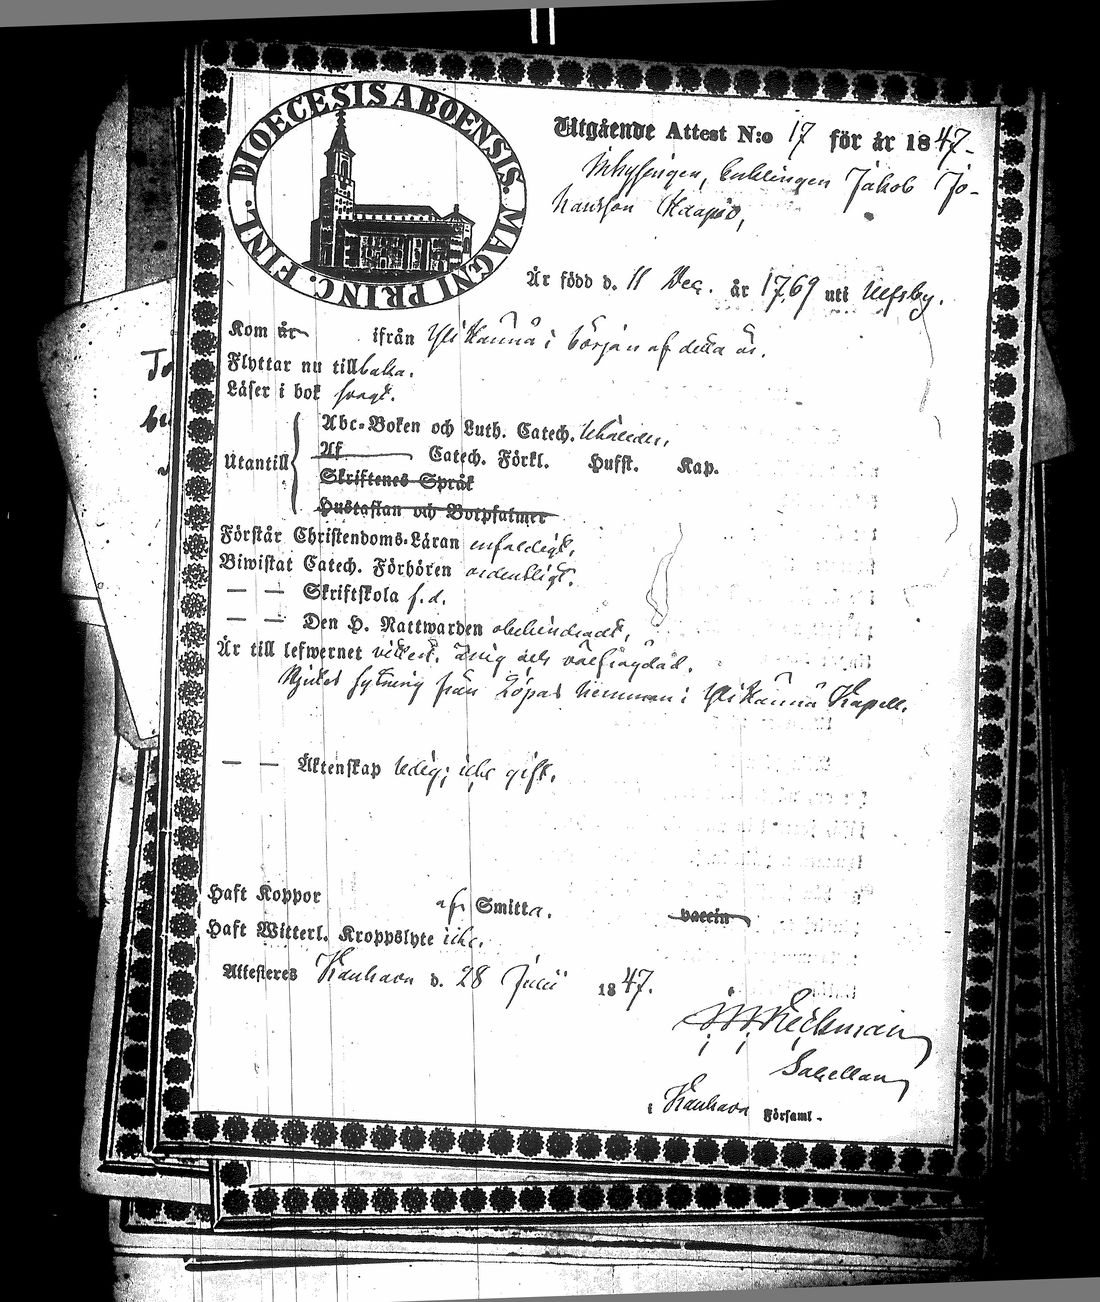 DIOECESIS ABOENSIS. MAGNI PRINC. FINL.
Utgående Attest N:o 17 för år 1847.
Inhysingen, Enklingen Jakob Jo-
hansson Kaapio,
Är född d. 11 Dec. år 1769 uti Ulfsby.
Kom år ifrån Ylikannu i början af detta år.
Flyttar nu tillbaka.
Läser i bok svagt.
Utantill
Abc-Boken och Luth. Catech.
Af Catech. Förkl. Hufst. Kap.
Skriftenes Språk
Hustaflan och Botpsalmer
Förstår Christendoms-Läran enfaldigt,
Biwistat Catech. Förhören ordentligt.
— — Skriftskola f.d.
— — Den H. Nattwarden obehindradt,
Är till lefwernet ärlig och välfrägdad.
Njuter sytning från Löpas hemman i Ylikannu Kapell.
— — Äktenskap ledig; icke gift.
Haft Koppor af Smitta. vaccin
Haft Witterl. Kroppslyte icke.
Attesteres Kauhava d. 28 Julii 1847.
Sacellan
i Kauhava Församl.